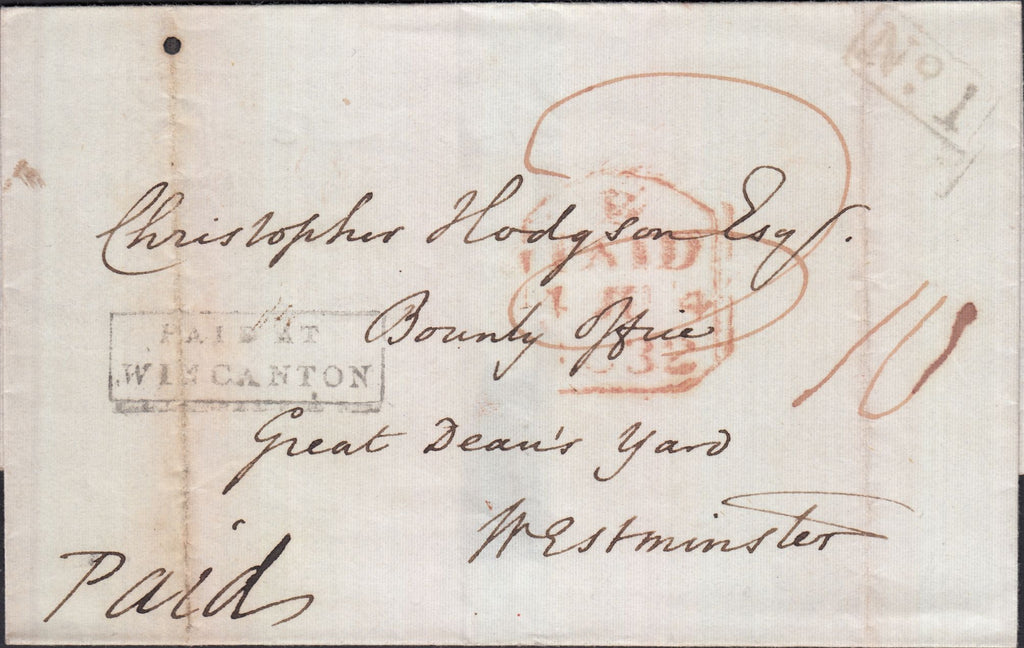 No. 1
Christopher Hodgson Esqr.
PAID
1832
PAID AT
WINCANTON
Bounty Office
10
Great Dean's Yard
Westminster
Paid